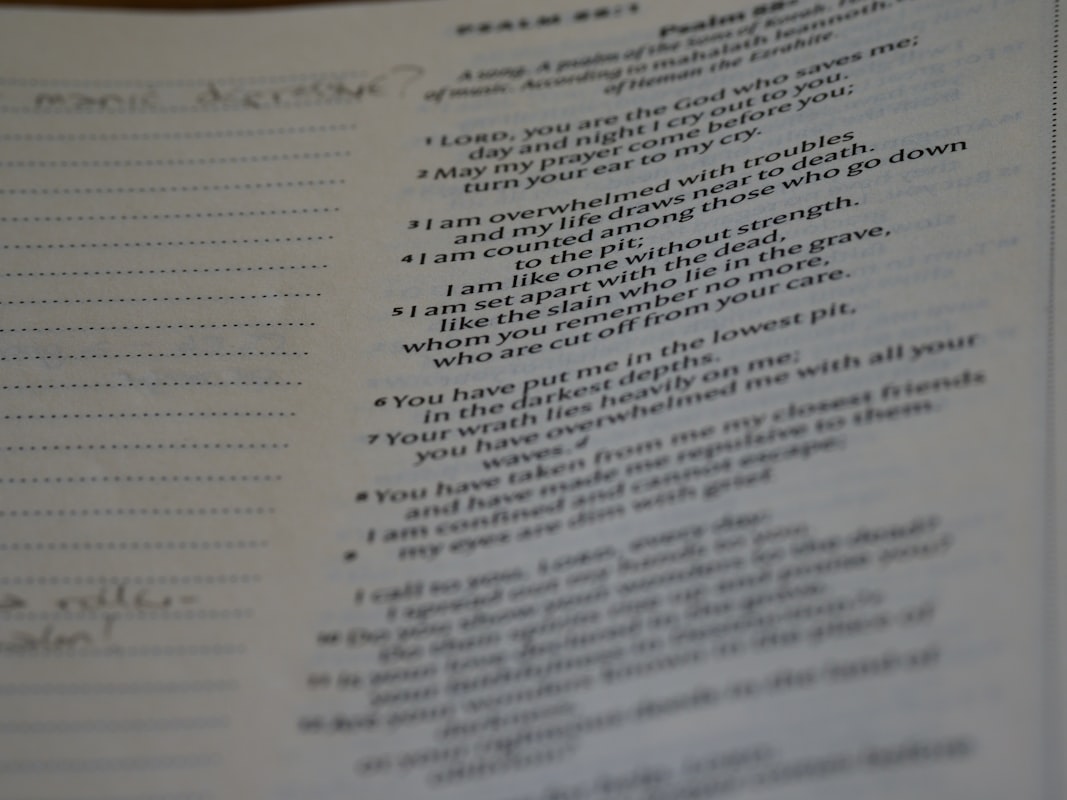 PSALM 88:1
Psalm 88
manic depressive?
A song. A psalm of the Sons of Korah.
of music. According to mahalath leannoth.
of Heman the Ezrahite.
1 LORD, you are the God who saves me;
day and night I cry out to you.
2 May my prayer come before you;
turn your ear to my cry.
3 I am overwhelmed with troubles
and my life draws near to death.
4 I am counted among those who go down
to the pit;
I am like one without strength.
5 I am set apart with the dead,
like the slain who lie in the grave,
whom you remember no more,
who are cut off from your care.
6 You have put me in the lowest pit,
in the darkest depths.
7 Your wrath lies heavily on me;
you have overwhelmed me with all your
waves.d
8 You have taken from me my closest friends
and have made me repulsive to them.
I am confined and cannot escape;
9 my eyes are dim with grief.
I call to you, LORD, every day;
I spread out my hands to you.
10 Do you show your wonders to the dead?
Do their spirits rise up and praise you?
11 Is your love declared in the grave,
your faithfulness in Destruction?
12 Are your wonders known in the place of
darkness,
or your righteous deeds in the land of
oblivion?